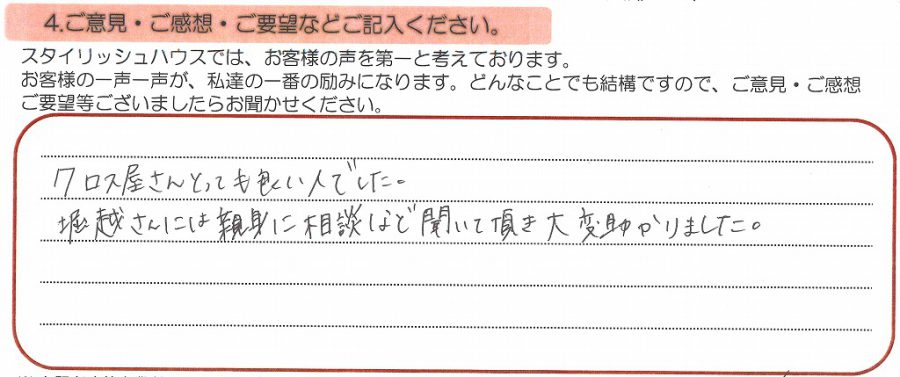 4.ご意見・ご感想・ご要望などご記入ください。
スタイリッシュハウスでは、お客様の声を第一と考えております。
お客様の一声一声が、私達の一番の励みになります。どんなことでも結構ですので、ご意見・ご感想
ご要望等ございましたらお聞かせください。
クロス屋さんとっても良い人でした。
堀越さんには親身に相談など聞いて頂き大変助かりました。